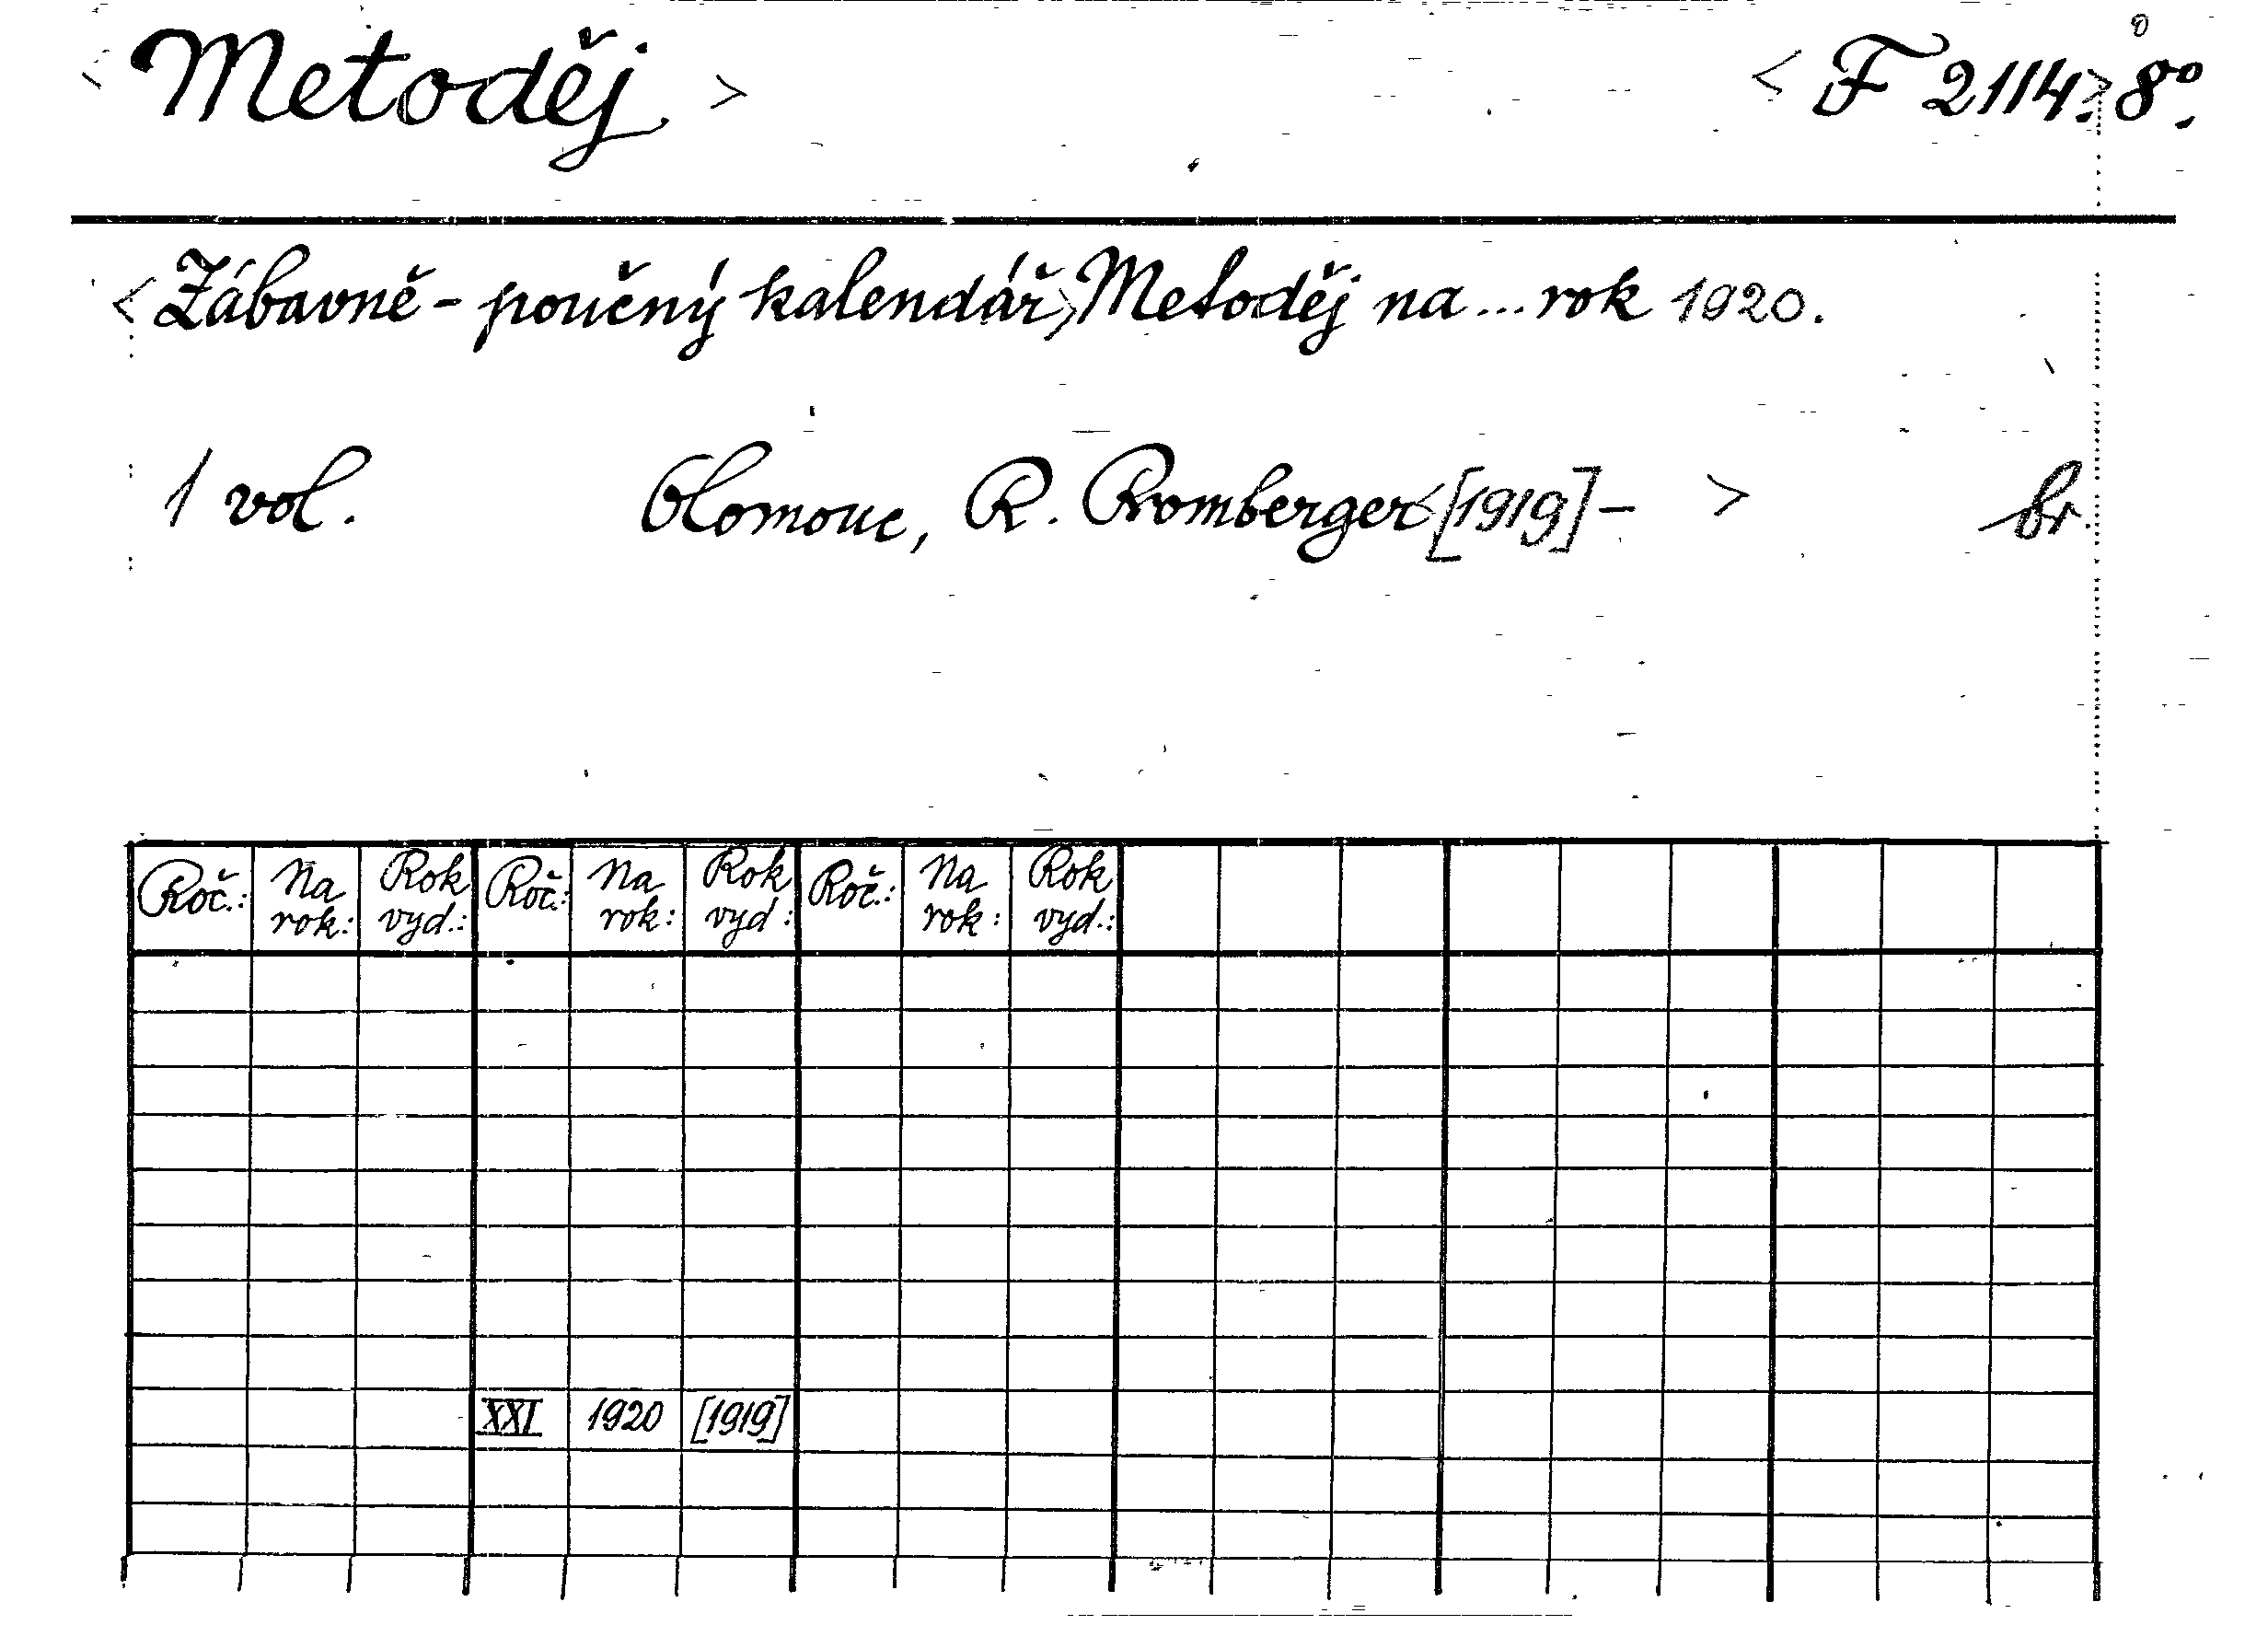 < Metoděj > < F 2114.> 8º.
< Zábavně - poučný kalendář > Metoděj na ... rok 1920.
1 vol. Olomouc, R. Promberger < [1919] - > br.
Roč.: Na rok: Rok vyd.: Roč.: Na rok: Rok vyd.: Roč.: Na rok: Rok vyd.:
XXI 1920 [1919]